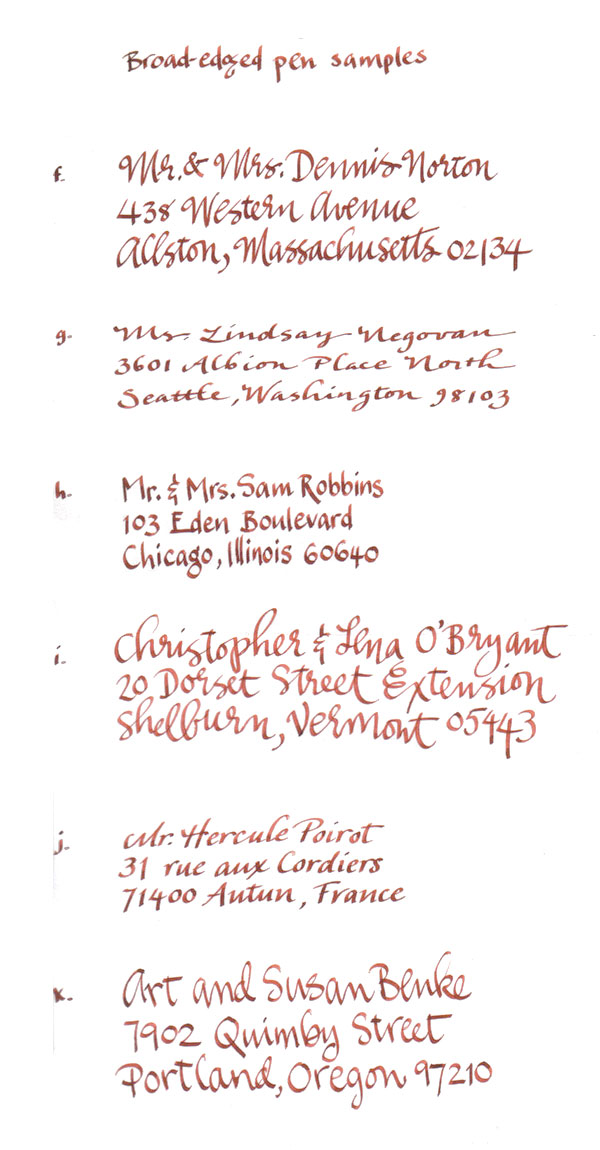 Broad-edged pen samples
f. Mr. & Mrs. Dennis Norton
438 Western Avenue
Allston, Massachusetts 02134
g. Ms. Lindsay Negovan
3601 Albion Place North
Seattle, Washington 98103
h. Mr. & Mrs. Sam Robbins
103 Eden Boulevard
Chicago, Illinois 60640
i. Christopher & Lena O'Bryant
20 Dorset Street Extension
Shelburn, Vermont 05443
j. Mr. Hercule Poirot
31 rue aux Cordiers
71400 Autun, France
k. Art and Susan Benke
7902 Quimby Street
Portland, Oregon 97210